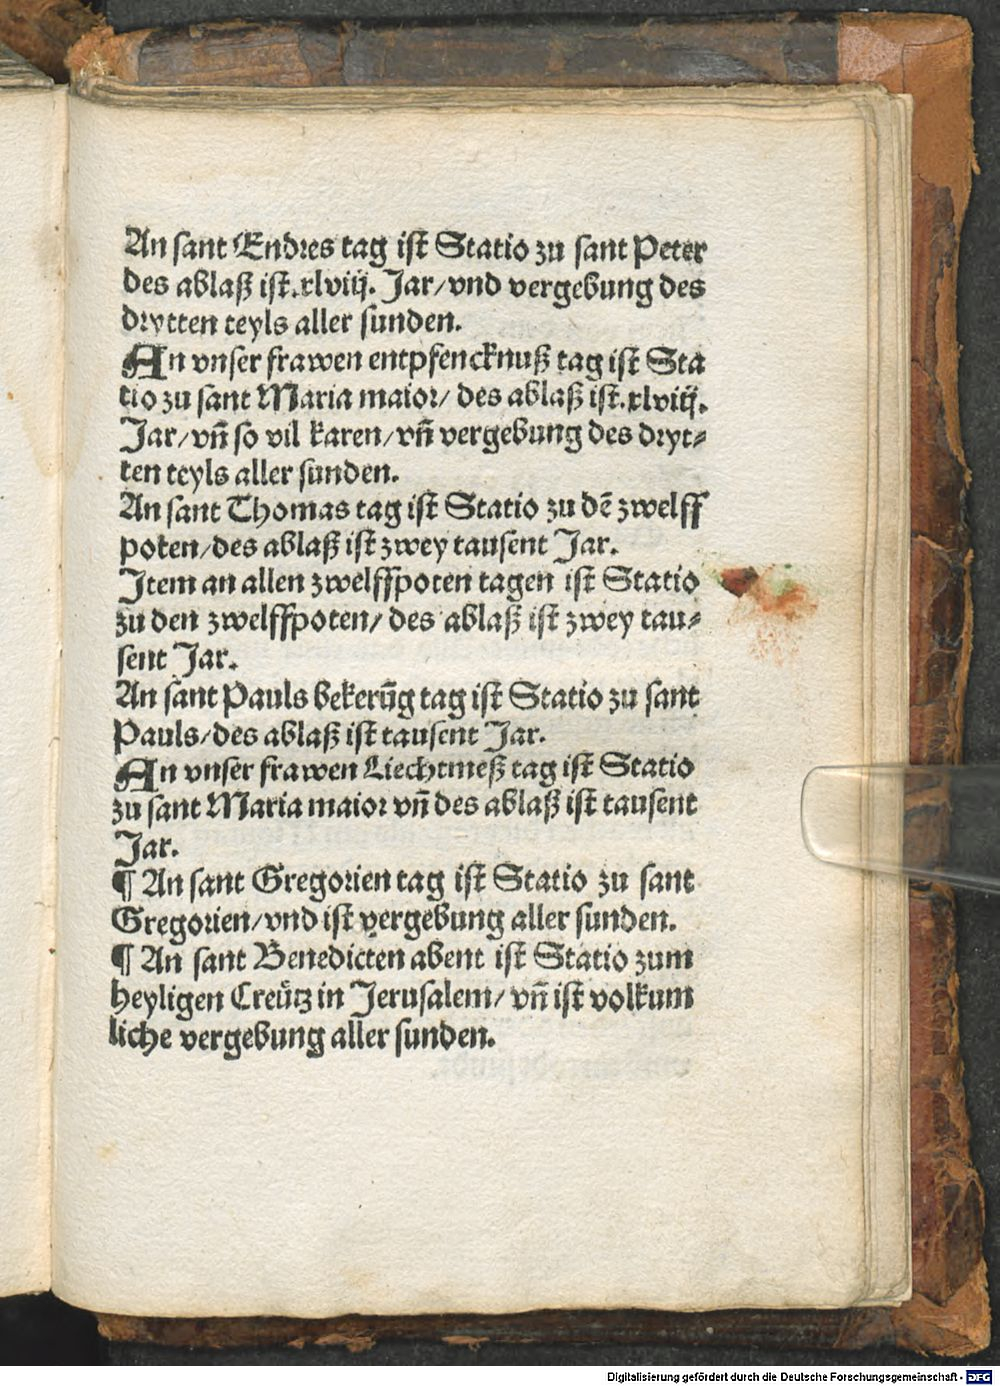 An sant Endres tag ist Statio zu sant Peter
des ablaß ist .xlviij. Jar/vnd vergebung des
drytten teyls aller sunden.
An vnser frawen entpfencknuß tag ist Sta
tio zu sant Maria maior/ des ablaß ist .xlviij.
Jar/vñ so vil karen/vñ vergebung des dryt⸗
ten teyls aller sunden.
An sant Thomas tag ist Statio zu dē zwelff
poten/des ablaß ist zwey tausent Jar.
Item an allen zwelffpoten tagen ist Statio
zu den zwelffpoten/ des ablaß ist zwey tau⸗
sent Jar.
An sant Pauls bekerūg tag ist Statio zu sant
Pauls/des ablaß ist tausent Jar.
An vnser frawen Liechtmeß tag ist Statio
zu sant Maria maior vñ des ablaß ist tausent
Jar.
¶ An sant Gregorien tag ist Statio zu sant
Gregorien/vnd ist vergebung aller sunden.
¶ An sant Benedicten abent ist Statio zum
heyligen Creütz in Jerusalem/ vñ ist volkum
liche vergebung aller sunden.
Digitalisierung gefördert durch die Deutsche Forschungsgemeinschaft - DFG